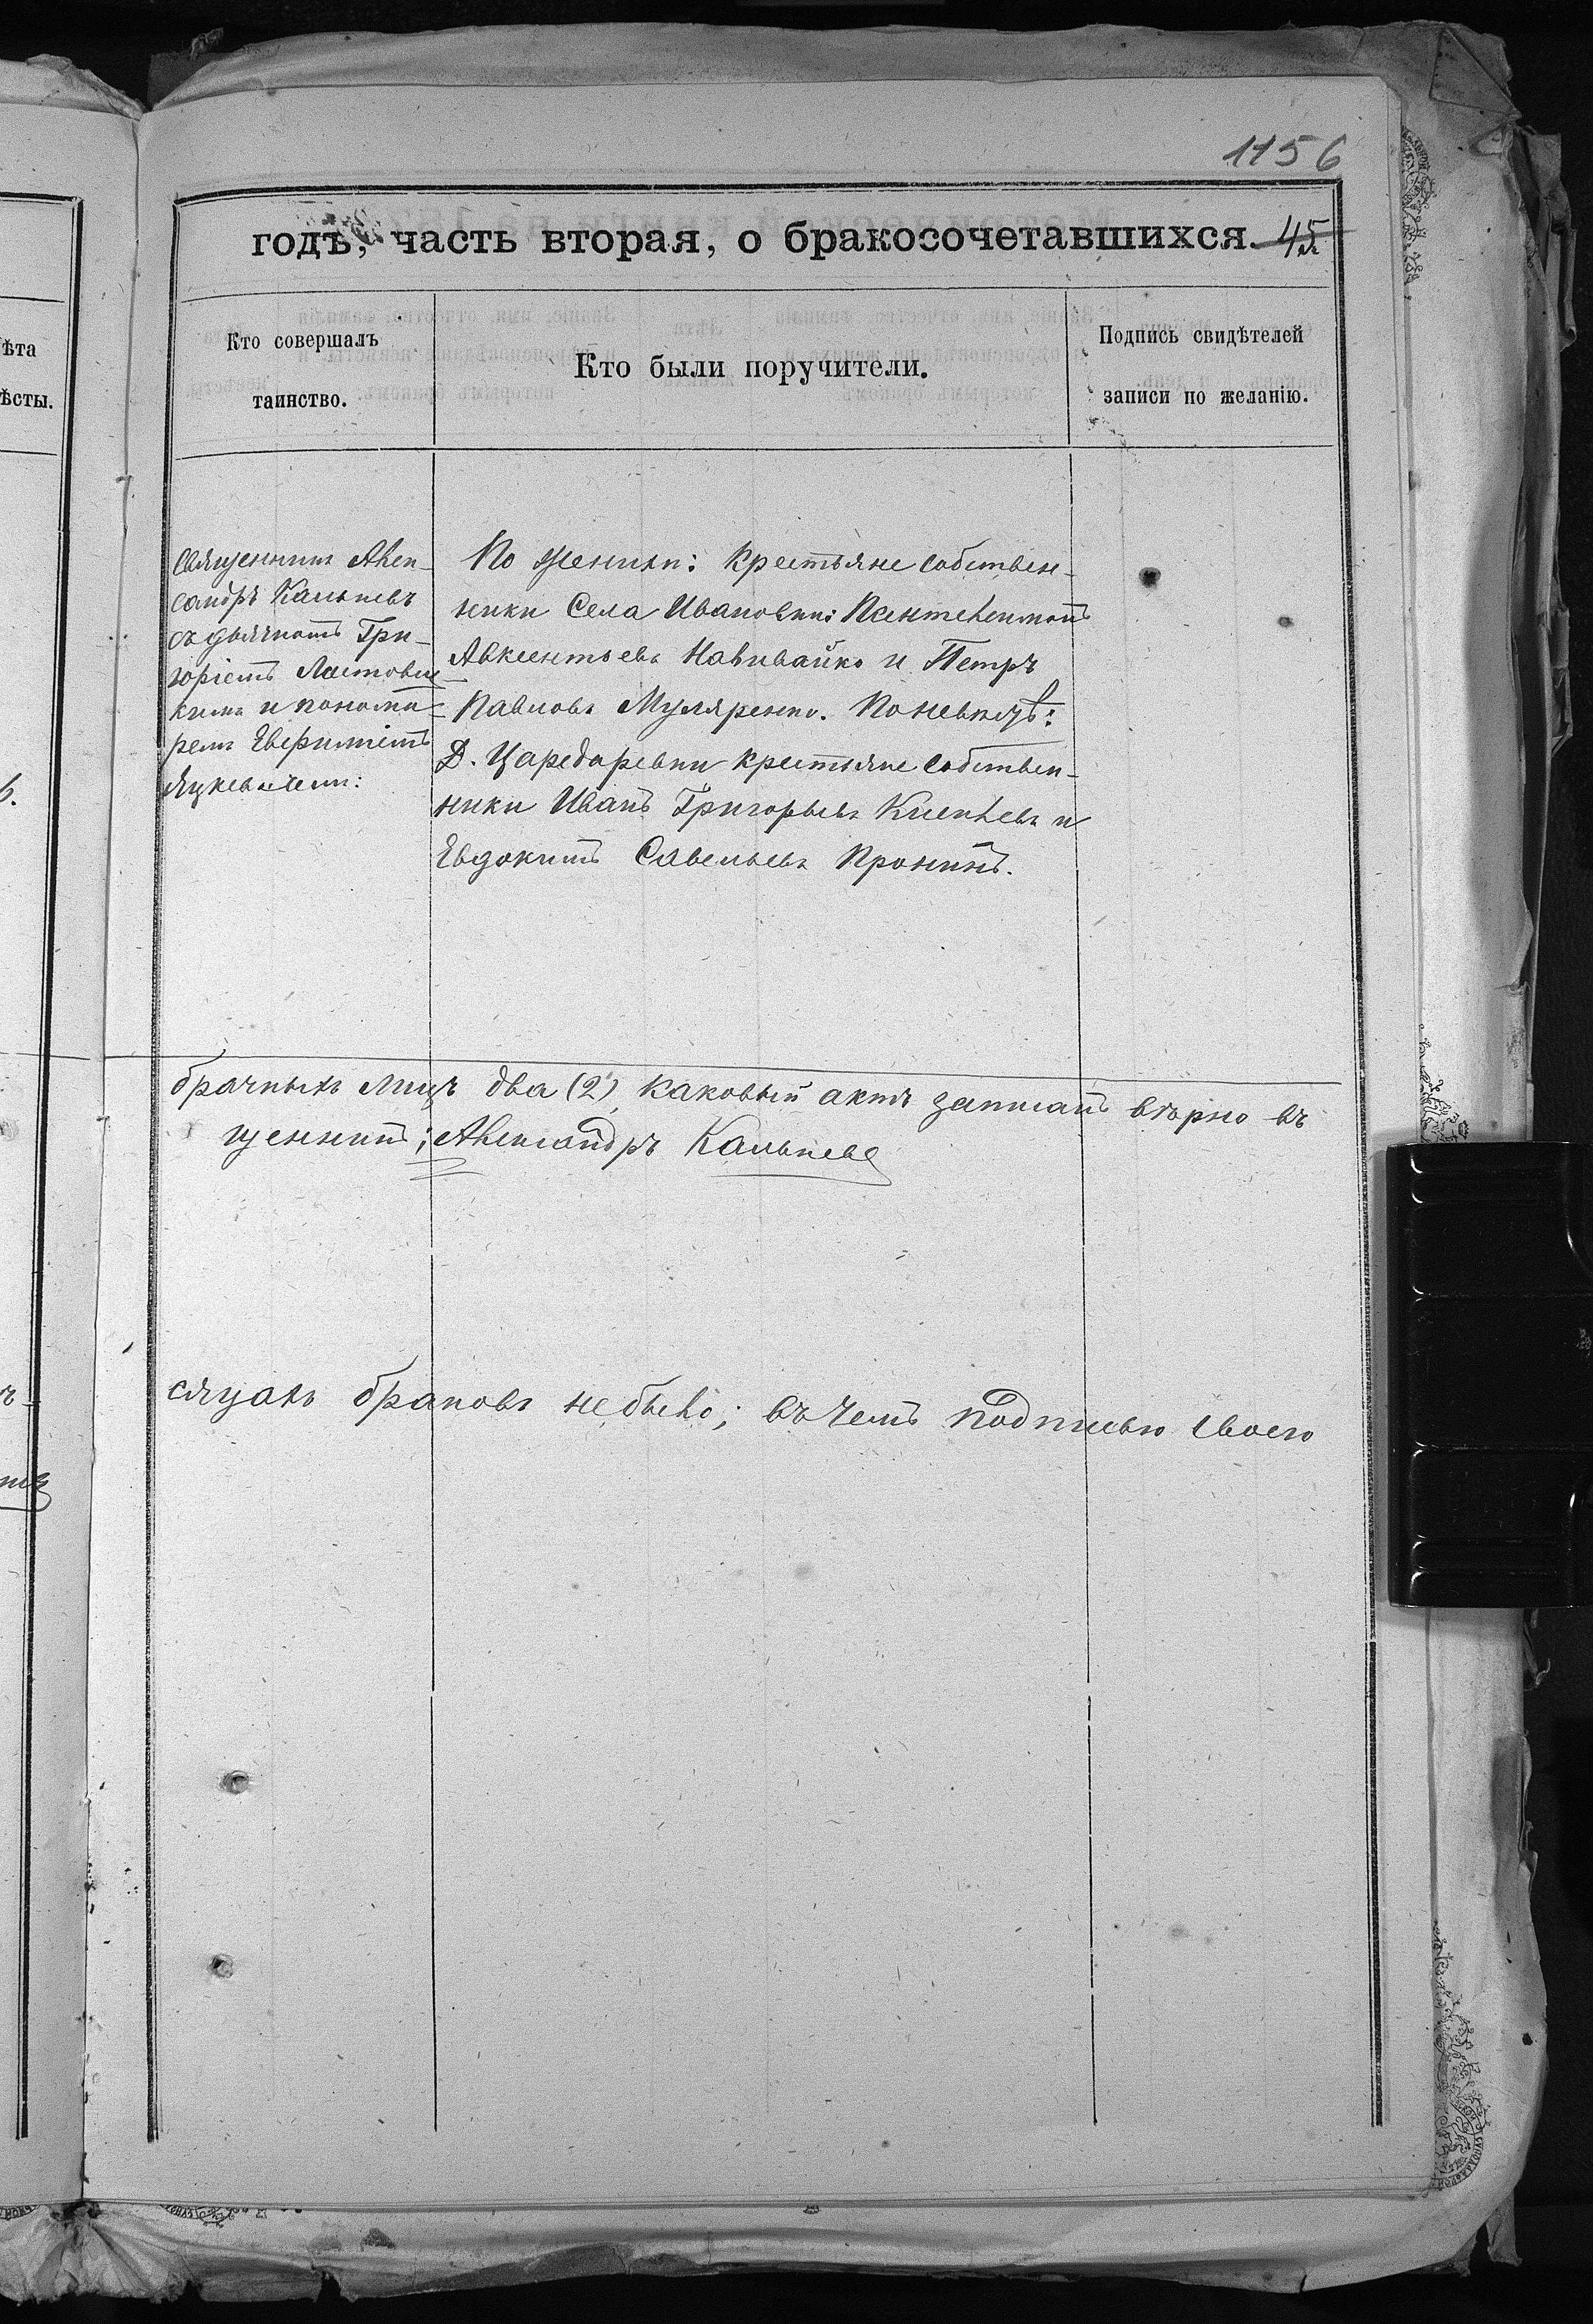 1156
годъ, часть вторая, о бракосочетавшихся. 45
Кто совершалъ
таинство.
Кто были поручители.
Подпись свидѣтелей
записи по желанію.
ѣта
ѣсты.
Священникъ Алек-
сандръ Кальневъ
съ дьячкомъ Гри-
горіемъ Ластовец-
кимъ и понома-
ремъ Евфиміемъ
Яцкевичемъ:
По женихѣ: Крестьяне собствен-
ники Села Ивановки: Пантелеимонъ
Авксентьевъ Наливайко и Петръ
Павловъ Муляренко. По невѣстѣ:
Д. Царедаревки крестьяне собствен-
ники Иванъ Григорьевъ и
Евдокимъ Савельевъ Пронинъ.
брачныхъ лицъ два (2), каковый актъ записанъ вѣрно въ
щенникъ; Александръ Кальневъ
сяцахъ браковъ не было; въ чемъ подписью своею